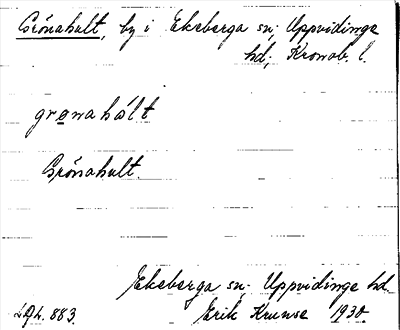 Grönahult, by i Ekeberga sn; Uppvidinge
hd; Kronob. l.
grønahålt
Grönahult.
Ekeberga sn; Uppvidinge hd.
Erik Krunse 1930